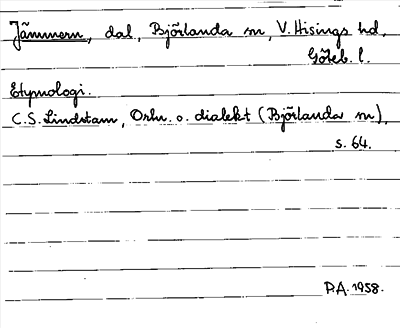 Jämmern, dal, Björlanda sn, V. Hisings hd,
Göteb. l.
Etymologi.
C.S. Lindstam, Ortn. o. dialekt (Björlanda sn),
s. 64.
P.A. 1958.